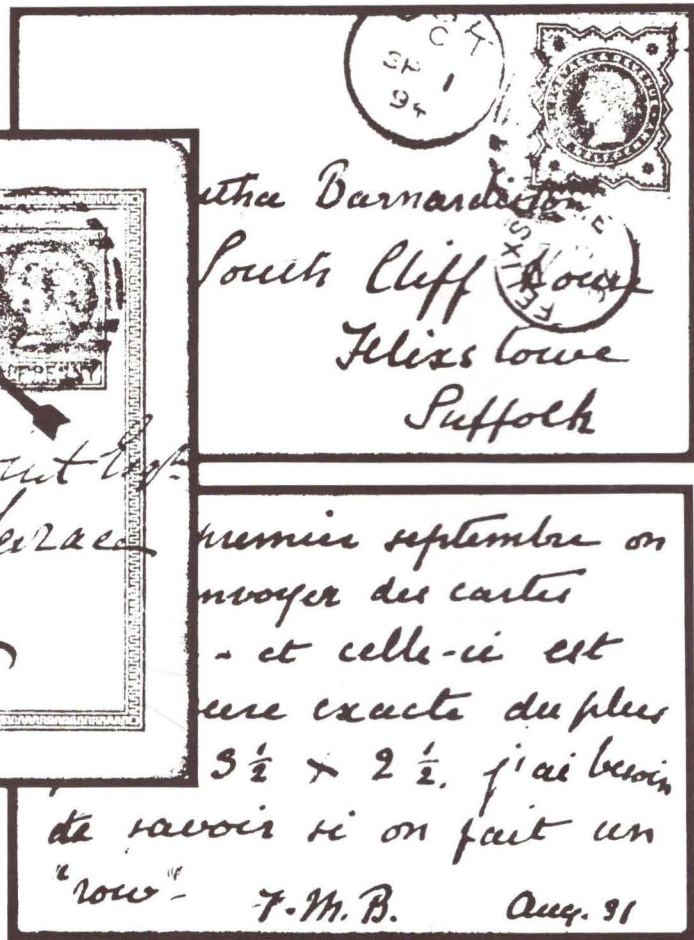 C
SP 1
94
POSTAGE & REVENUE
utha Barnardiston
South Cliff House
Felixstowe
Suffolk
FELIXSTOWE
premier septembre on
nvoyer des cartes
- et celle-ci est
eure exacte du plus
3 ½ × 2 ½. j'ai besoin
de savoir si on fait un
"row"- F.M.B. Aug. 31